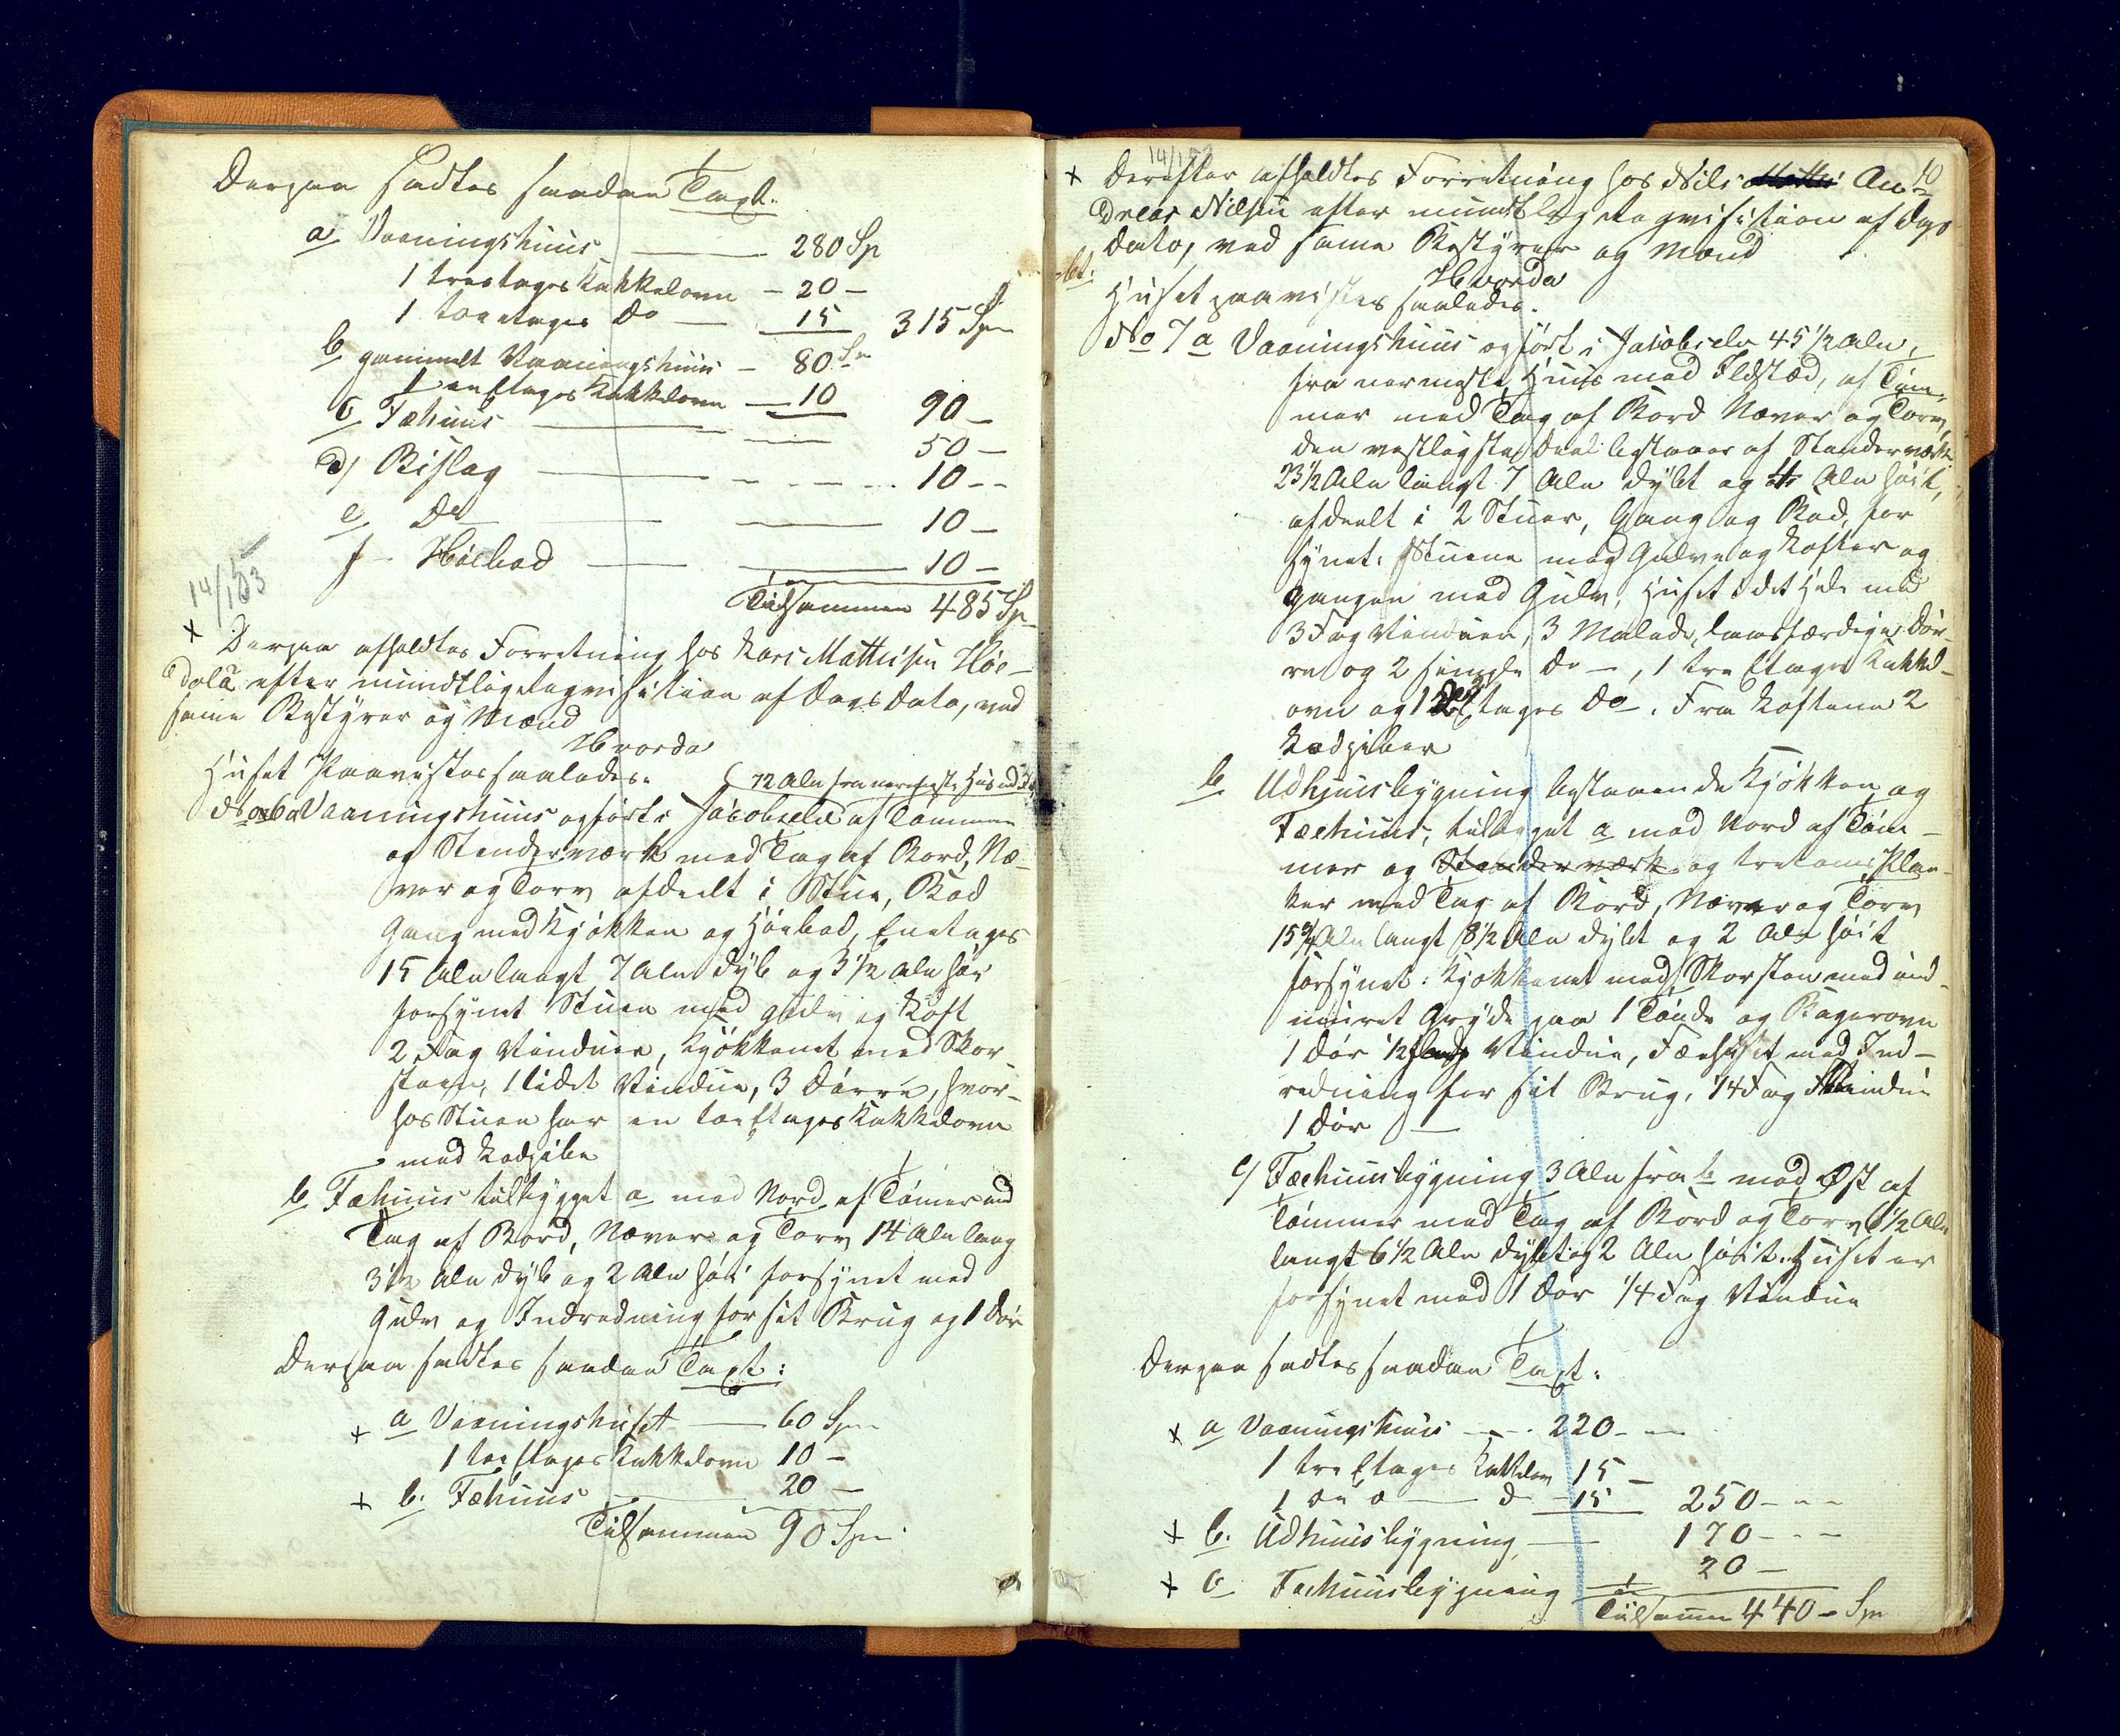 Derpaa sadtes saadan Taxt.
a Vaaningshuus — 280 Sp
1 treetages Kakkelovn — 20 —
1 toeetages Do — 15 315 Spe
b gammelt Vaaningshuus — 80 Sp
1 en Etages Kakkelovn — 10 90 —
c Fæhuus — 50 —
d) Bislag — 10 --
e Do — 10 —
f — Höebod — 10 —
Tilsammen 485 Sp
14/153
x Derpaa afholdtes Forretning hos Lars Mathisen Hie-
tola efter mundtlig Requisition af Dags Dato, ved
samme Bestyrer og Mænd
Hvorda
Huset Paavistes saaledes.
72 Aln fra nærmeste Huus med Ild
No 6 a Vaaningshuus opfört i Jacobselv af Tømmer
og Stenderværk med Tag af Bord, Næ-
ver og Torv afdeelt i Stue, Bod
Gang med Kjøkken og Höebod, Enetages
15 Aln langt 7 Aln dyb og 3 1/2 Aln høi
forsynet Stuen med Gulv og Loft
2 Fag Vinduer, Kjøkkenet med Skor-
steen, 1 lidet Vindue, 3 Dørre, hvor-
hos Stuen har en toe Etages Kakkelovn
med Ladpibe
b Fæhuus tilbygget a mod Nord af Tømer med
Tag af Bord, Næver og Torv 14 Aln lang
3 1/2 Aln dyb og 2 Aln høi forsynet med
Gulv og Indredning for sit Brug og 1 Dør
Derpaa sadtes saadan Taxt:
x a Vaaningshuset — 60 Spe
1 toe Etages Kakkelovn 10 —
x b. Fæhuus — 20 —
Tilsammen 90 Spe
14/153
10
x Derefter afholdtes Forretning hos Nils An-
dreas Nilsen efter mundtlig Requisition af Dags
Dato, ved samme Bestyrer og Mænd
Hvorda
Huset paavistes saaledes.
No 7 a Vaaningshuus opfört i Jacobselv 45 1/2 Aln,
fra nærmeste Huus med Ildsted, af Tøm-
mer med Tag af Bord Næver og Torv,
den vestligste Deel bestaaer af Stenderværk
23 1/2 Aln langt 7 Aln dybt og 4 Aln høit,
afdeelt i 2 Stuer, Gang og Bod, for
synet: Stuene med Gulve og Lofter og
Gangen med Gulv, Huset i det Hele med
3 Fag Vinduer, 3 Malede, laasfærdige Dør-
re og 2 simple Do —, 1 tre Etages Kakkel-
ovn og 1 Etages Do. Fra Loftene 2
Ladpiber
b Udhuusbygning bestaaende Kjøkken og
Fæehuus, tilbygget a mod Nord af Töm-
mer og Stenderværk og tretoms Plan-
ker med Tag af Bord, Næver og Torv
15 3/4 Aln langt 8 1/2 Aln dybt og 2 Aln høit
forsynet: Kjøkkenet med Skorsteen med ind-
muret Gryde paa 1 Tønde og Bagerovn
1 dør 1/2 Vindue, Fæehuset med Ind-
redning for sit Brug, 1/4 Fag Vindue
1 dör —
c) Fæehuusbygning 3 Aln fra b mod Øst af
Tømmer med Tag af Bord og Torv 6 1/2 Aln
langt 6 1/2 Aln dybt og 2 Aln høit. Huset er
forsynet med 1 Dør 1/4 Fag Vindue
Derpaa sadtes saadan Taxt:
x a Vaaningshuus — 220 —
1 tre Etages Kakkelovn 15 —
1 — do 15 250 —
x b. Udhuusbygning — 170 —
x c Fæehuusbygning 20 —
Tilsamen 440 — Spe